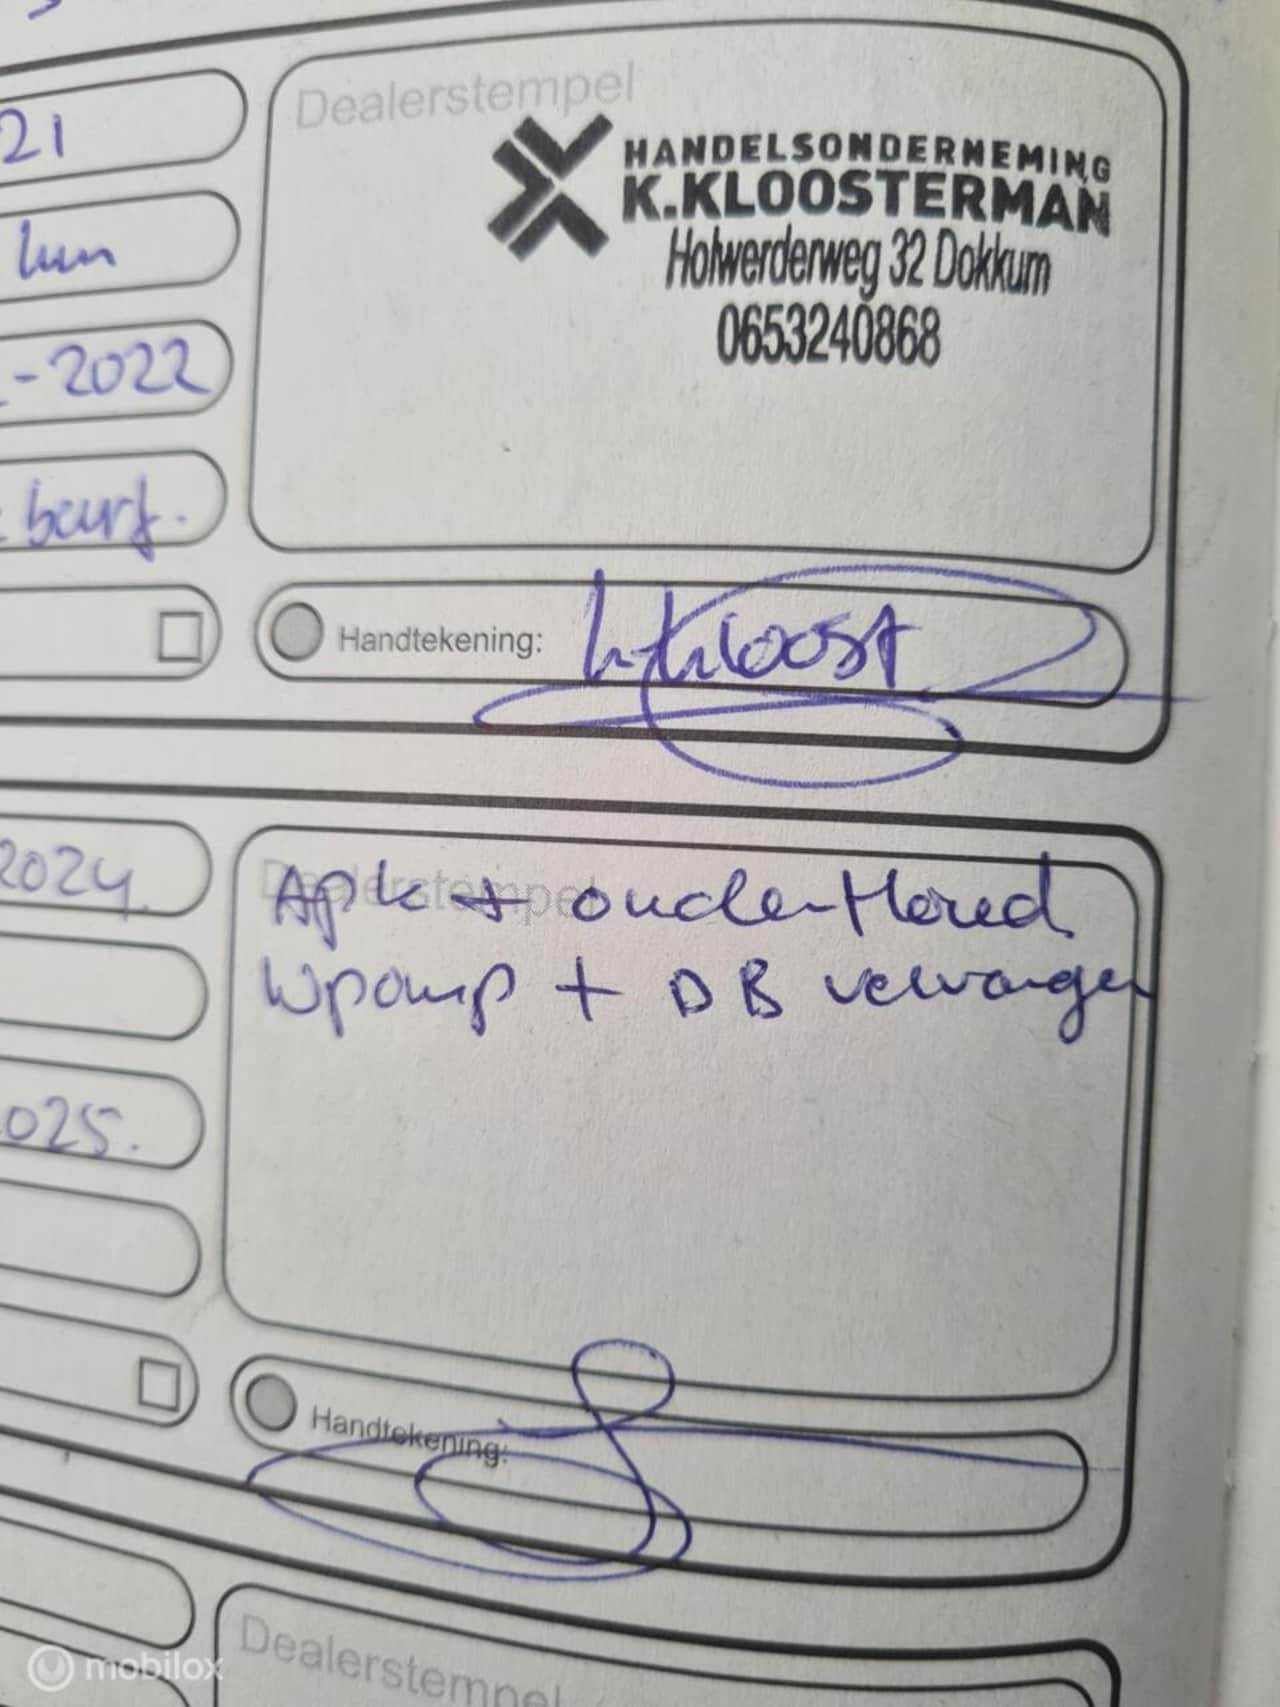 Dealerstempel
21
HANDELSONDERNEMING
K.KLOOSTERMAN
Holwerderweg 32 Dokkum
0653240868
km
-2022
beurt.
Handtekening:
2024
Dealerstempel
Apk + onderhoud
Wpomp + DB vervangen
2025.
Handtekening:
Dealerstempel
mobilox